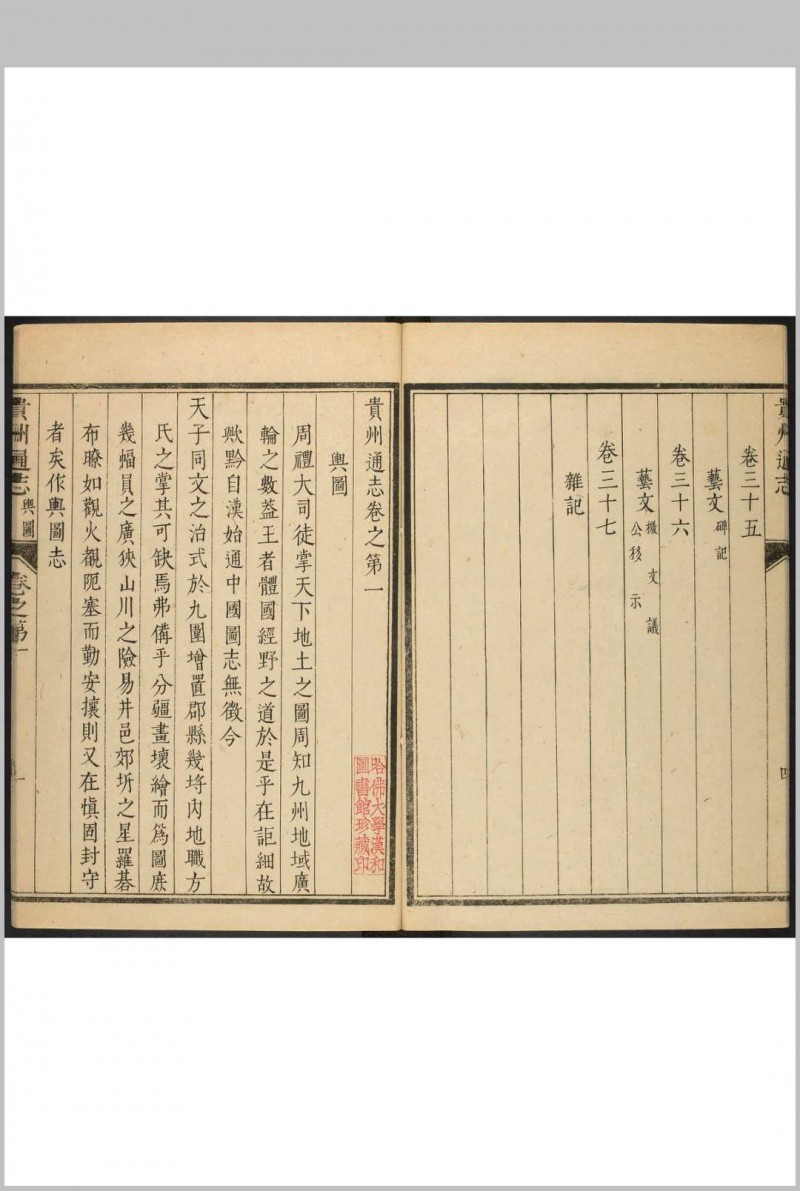 貴州通志
四
卷三十五
藝文碑記
卷三十六
藝文檄文議
公移示
卷三十七
雜記
貴州通志卷之第一
哈佛大學漢和
圖書館珍藏印
輿圖
周禮大司徒掌天下地土之圖周知九州地域廣
輪之數蓋王者體國經野之道於是乎在詎細故
歟黔自漢始通中國圖志無徵今
天子同文之治式於九圍增置郡縣幾埒內地職方
氏之掌其可缺焉弗備乎分疆畫壤繪而爲圖庶
幾幅員之廣狹山川之險易井邑郊圻之星羅碁
布瞭如觀火覩阨塞而勤安攘則又在慎固封守
者矣作輿圖志
貴州通志 輿圖 卷之第一 一